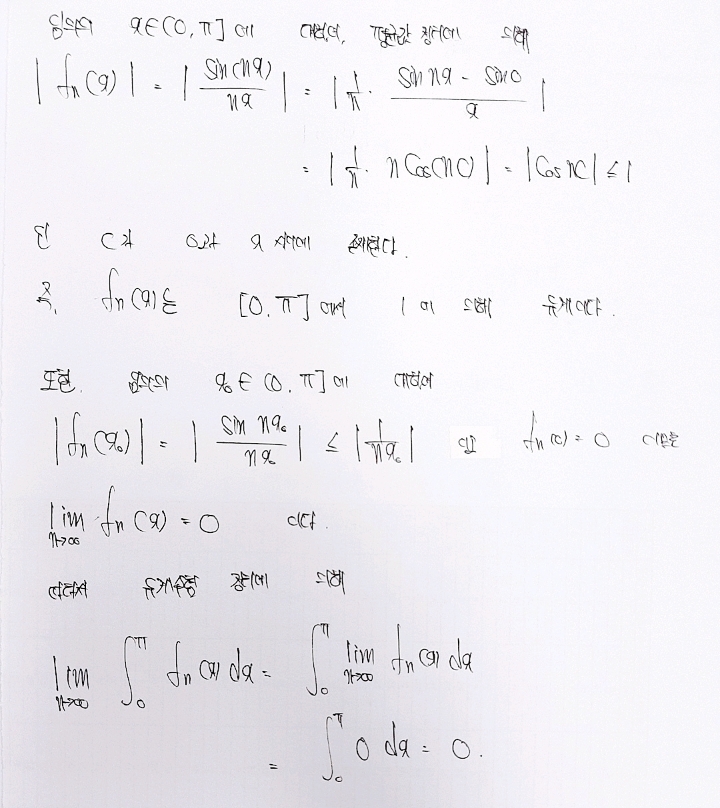 임의의 x∈(0, π]에 대하여, 평균값 정리에 의해
|fn(x)| = |sin(nx)/nx| = |1/n · (sin nx - sin 0)/x|
= |1/n · n cos(nc)| = |cos nc| ≤ 1
단 c가 0과 x 사이에 존재한다.
즉, fn(x)는 [0, π]에서 1에 의해 유계이다.
또한, 임의의 x₀ ∈ (0, π]에 대하여
|fn(x₀)| = |sin nx₀/nx₀| ≤ |1/nx₀| 이고 fn(0) = 0 이므로
lim n→∞ fn(x) = 0 이다.
따라서 유계수렴 정리에 의해
lim n→∞ ∫₀^π fn(x) dx = ∫₀^π lim n→∞ fn(x) dx
= ∫₀^π 0 dx = 0.